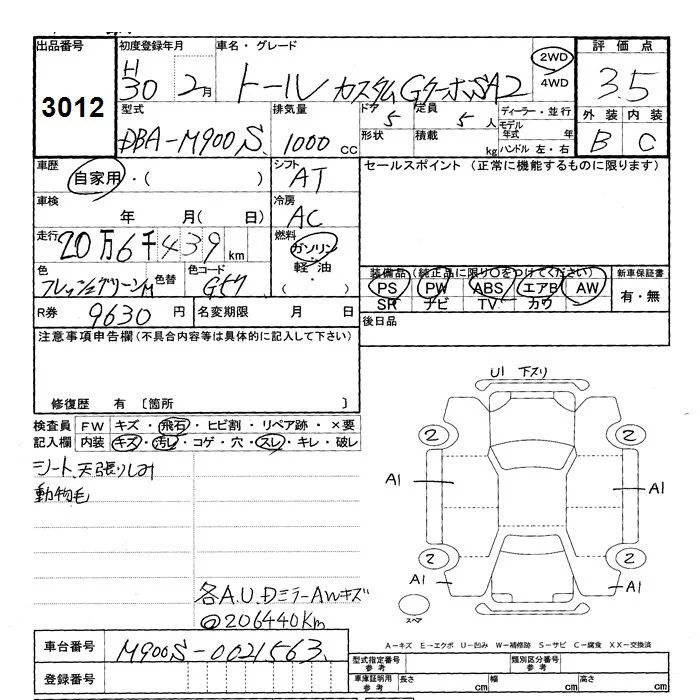 出品番号 初度登録年月 車名・グレード 2WD 4WD 評価点
3012 H30 2月 トール カスタムGターボSA2 3.5
型式 排気量 ドア 5 定員 5人 ディーラー・並行 外装 内装
DBA-M900S 1000cc 形状 積載 kg モデル年式 年 ハンドル 左・右 B C
車歴 自家用・( ) シフト AT セールスポイント (正常に機能するものに限ります)
車検 年 月( 日) 冷房 AC
走行 20万6千439km 燃料 ガソリン・軽油・( )
色 フレッシュグリーンM 色替 色コード G57
装備品 (純正品に限り○をつけてください) 新車保証書
PS PW ABS エアB AW 有・無
SR ナビ TV カワ
R券 9630円 名変期限 月 日 後日品
注意事項申告欄 (不具合内容等は具体的に記入して下さい)
修復歴 有 〔箇所 〕
検査員 FW キズ・飛石・ヒビ割・リペア跡・×要
記入欄 内装 キズ・汚レ・コゲ・穴・スレ・キレ・破レ
シート、天張りしみ
動物毛
各A.U.Dミラ-AWキズ
@206440Km
U1 下スリ
2 2
A1 A1
2 2
A1 A1
スペア
A-キズ E-エクボ U-凹み W-補修跡 S-サビ C-腐食 XX-交換済
車台番号 M900S-0021563
登録番号
型式指定番号 参考 類別区分番号 参考
車庫証明用 参考 長さ cm 幅 cm 高さ cm